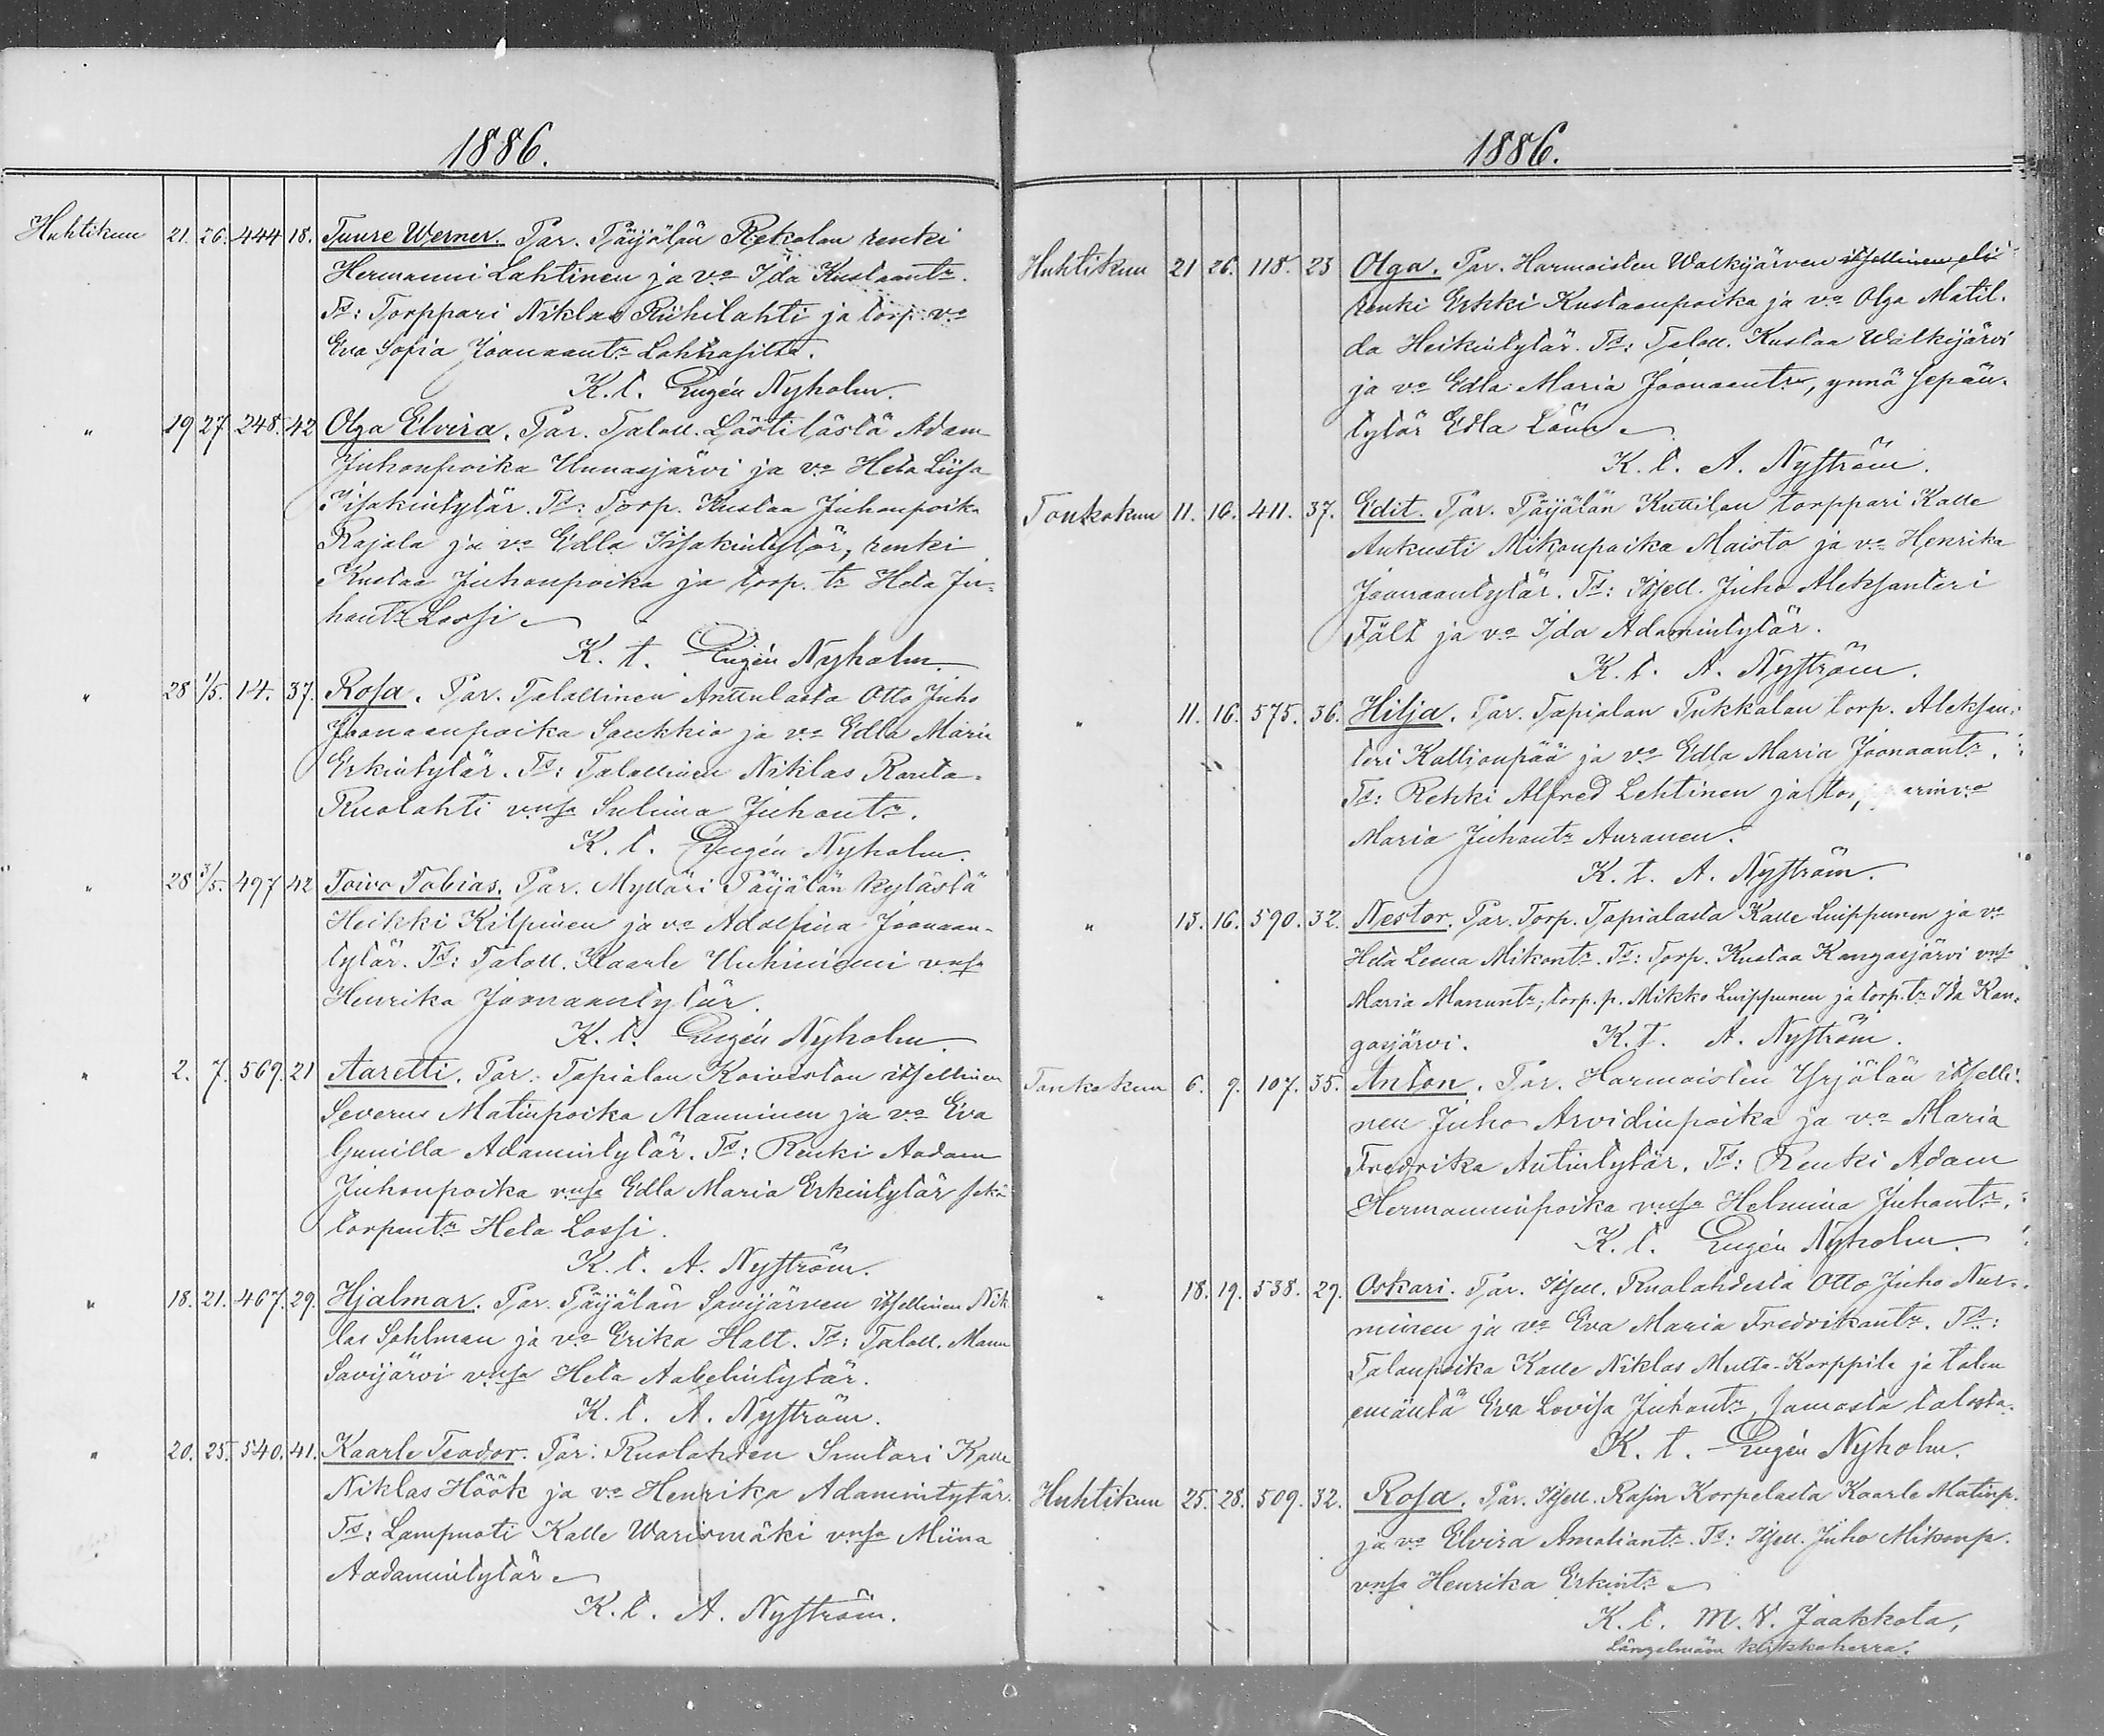 1886.
Huhtikuu 21. 26. 444 18. Tuure Werner. Par. Päijälän Rekolan renki
Hermanni Lahtinen ja v:o Ida Kustaantr.
Ts: Torppari Niklas Riihilahti ja torp. v:o
Eva Sofia Joonaantr
K. t. Eugén Nyholm.
" 19 27. 248. 42 Olga Elvira. Par. Taloll. Lästilästä Adam
Juhonpoika Unnasjärvi ja v:o Heta Liisa
Iisakintytär. Ts: Torp. Kustaa Juhonpoika
Rajala ja v:o Edla Iisakintytär, renki
Kustaa Juhonpoika ja torp. tr Heta Ju-
hantr Lossi
K. t. Eugén Nyholm.
" 28 1/5. 14. 37. Rosa. Par. Talollinen Anttulasta Otto Juho
Joonaanpoika Saukkio ja v:o Edla Maria
Erkintytär. Ts: Talollinen Niklas Ranta-
Ruolahti vnsa Sulima Juhantr.
K. t. Eugén Nyholm.
" 28 3/5. 497 42 Toivo Tobias. Par. Mylläri Päijälän kylästä
Heikki Kilpinen ja v:o Adolfina Joonaan-
tytär. Ts: Taloll. Kaarle Uuhiniemi vnsa
Henrika Joonaantytär.
K. t. Eugén Nyholm.
" 2. 7. 569. 21 Aaretti. Par. Tapialan Koiviston itsellinen
Severus Matinpoika Manninen ja v:o Eva
Gunilla Adamintytär. Ts: Renki Aadam
Juhonpoika vnsa Edla Maria Erkintytär sekä
torpintr Heta Lossi.
K. t. A. Nyström.
" 18. 21. 467. 29. Hjalmar. Par. Päijälän Savijärven itsellinen Nik
las Sahlman ja v:o Erika Halt. Ts: Taloll. Manu
Savijärvi vnsa Heta Aabelintytär.
K. t. A. Nyström.
" 20. 25. 540. 41. Kaarle Teodor. Par: Ruolahden Suutari Kalle
Niklas Höök ja v:o Henrika Adamintytär.
Ts: Lampuoti Kalle Warismäki vnsa Miina
Aadamintytär
K. t. A. Nyström.
1886.
Huhtikuu 21 26. 118. 23 Olga. Par. Harmoisten Walkijärven itsellinen eli
renki Erkki Kustaanpoika ja v:o Olga Matil-
da Heikintytär. Ts: Taloll. Kustaa Walkijärvi
ja v:o Edla Maria Joonaantr, ynnä sepän-
tytär Edla Lönn
K. t. A. Nyström.
Toukokuu 11. 16. 411. 37. Edit. Par. Päijälän Kuttilan torppari Kalle
Aukusti Mikonpoika Maisto ja v:o Henrika
Joonaantytär. Ts: Itsell. Juho Aleksanteri
Fält ja v:o Ida Adamintytär.
K. t. A. Nyström.
" 11. 16. 575. 36. Hilja. Par. Tapialan Pukkalan torp. Aleksan-
teri Kallionpää ja v:o Edla Maria Joonaantr.
Ts: Renki Alfred Lehtinen ja torpparinv:o
Maria Juhantr Auranen.
K. t. A. Nyström.
" 13. 16. 590. 32. Nestor. Par. Torp. Tapialasta Kalle Luippunen ja v:o
Heta Leena Mikontr. Ts: Torp. Kustaa Kangasjärvi vnsa
Maria Manuntr, torp. p. Mikko Luippunen ja torp. tr Ida Kan-
gasjärvi. K. t. A. Nyström.
Toukokuu 6. 9. 107. 35. Anton. Par. Harmoisten Yrjölän itselli-
nen Juho Arvidinpoika ja v:o Maria
Fredrika Antintytär. Ts: Renki Adam
Hermanninpoika vnsa Helmina Juhantr.
K. t. Eugén Nyholm.
" 18. 19. 538. 29. Oskari. Par. Itsell. Ruolahdesta Otto Juho Nur-
minen ja v:o Eva Maria Fredrikantr. Ts:
Talonpoika Kalle Niklas Multa-Korppila ja talon
emäntä Eva Lovisa Juhantr samasta talosta.
K. t. Eugén Nyholm.
Huhtikuu 25. 28. 509. 32. Rosa. Par. Itsell. Rasin Korpelasta Kaarle Matinp.
ja v:o Elvira Amaliantr. Ts: Itsell. Juho Mikonp.
vnsa Henrika Erkintr
K. t. M. V. Jaakkola,
Längelmäen kirkkoherra.